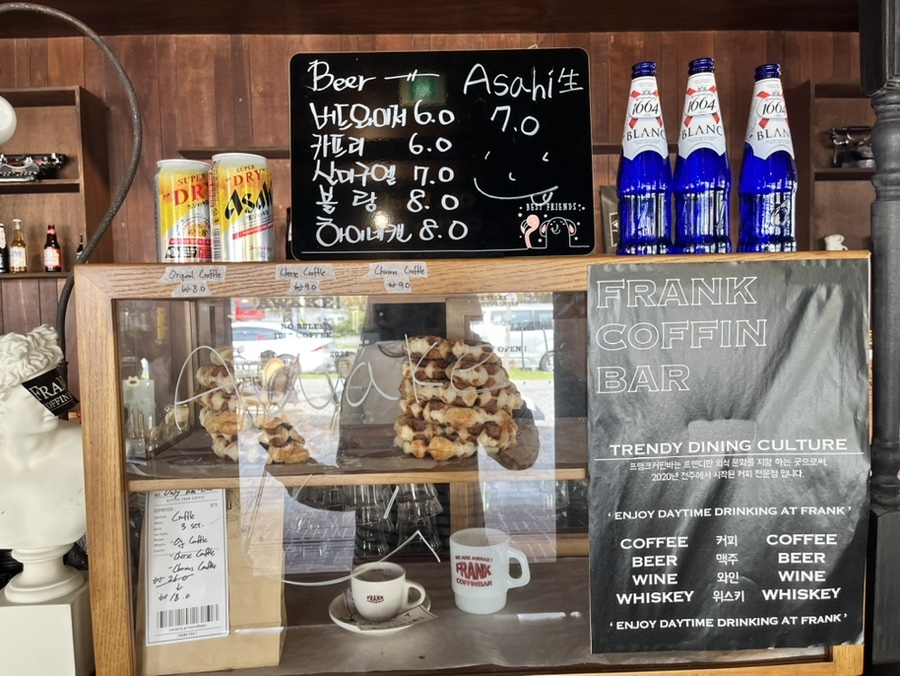 Beer
Asahi生
7.0
버드와이저 6.0
카프리 6.0
산미구엘 7.0
볼 탕 8.0
하이네켄 8.0
BEST FRIENDS
SUPER
"DRY"
SUPER
"DRY"
Asahi
1664
BLANC
1664
BLANC
1664
BLANC
Original Croffle
₩8.0
Cheese Croffle
₩9.0
Churros Croffle
₩9.0
AWAKE!
NO RULES
Awake
FRANK
COFFIN
BAR
TRENDY DINING CULTURE
프랭크커핀바는 트렌디한 외식 문화를 지향 하는 곳으로써,
2020년 전주에서 시작된 커피 전문점 입니다.
' ENJOY DAYTIME DRINKING AT FRANK '
COFFEE 커피 COFFEE
BEER 맥주 BEER
WINE 와인 WINE
WHISKEY 위스키 WHISKEY
' ENJOY DAYTIME DRINKING AT FRANK '
Croffle
3 set.
- Og Croffle
- Cheese Croffle
- Churros Croffle
₩ 26.0
↓
₩ 13.0
WE ARE AWAKE!
FRANK
COFFINBAR
FRANK